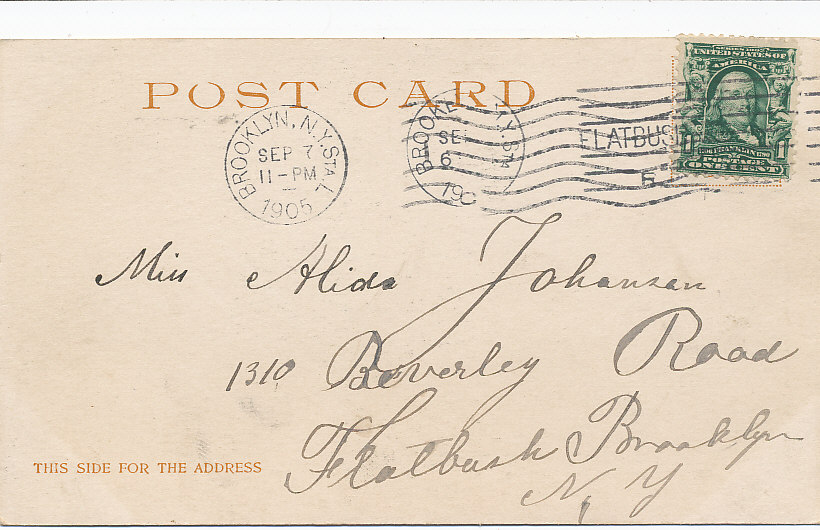 POST CARD
SERIES 1902
UNITED STATES OF
AMERICA
FRANKLIN
POSTAGE
ONE CENT
BROOKLYN, N.Y. STA L
SEP 7
11-PM
1905
SE
6
19
FLATBUS
Miss Alida Johansen
1310 Beverley Road
Flatbush Brooklyn
N, Y
THIS SIDE FOR THE ADDRESS